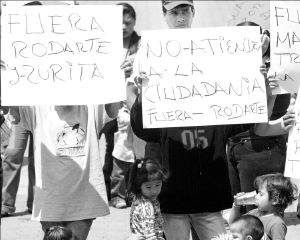 FUERA
RODARTE
Y-ZURITA
NO-ATIENDE
A-LA
CIUDADANIA
FUERA-RODARTE
05
FUERA
MA
TR